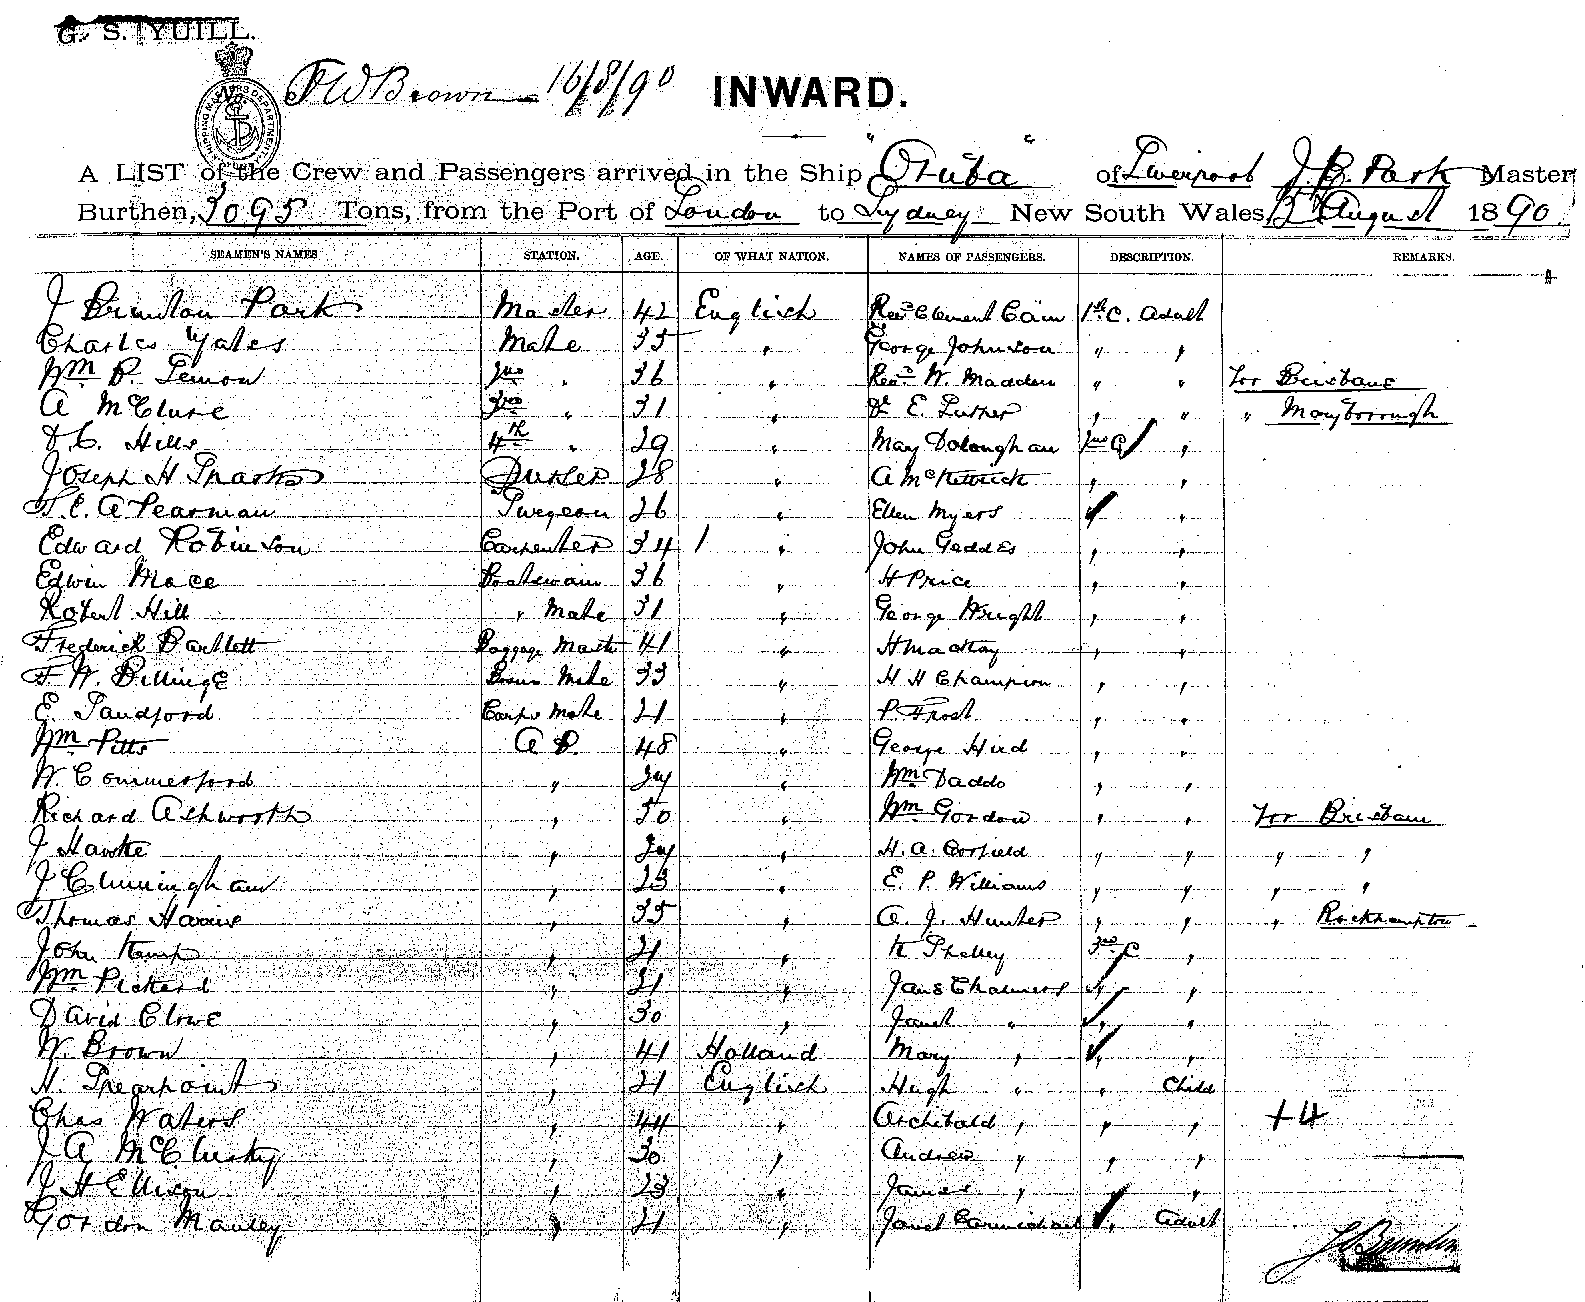 G. S. YUILL.
F W Brown 16/8/90 INWARD.
A LIST of the Crew and Passengers arrived in the Ship "Oruba" of Liverpool J. B. Park Master
Burthen, 3095 Tons, from the Port of London to Sydney New South Wales, August 1890
SEAMEN'S NAMES STATION. AGE. OF WHAT NATION. NAMES OF PASSENGERS. DESCRIPTION. REMARKS.
J Brunton Park Master 42 English Revd Clement Cain 1st C. Adult
Charles Yates Mate 35 " George Johnson " "
Wm B. Lemon 2nd " 36 " Revd W. Madden " " For Brisbane
A McClure 3rd " 31 " Dr E. Luther " " " Maryborough
D C. Hills 4th " 29 " May Doloughan 2nd C "
Joseph H Sparks Purser 28 " A McKittrick " "
A Pearman Surgeon 26 " Ellen Myers " "
Edward Robinson Carpenter 34 " John Geddes " "
Edwin Mace Boatswain 36 " H Price " "
Robert Hill " Mate 31 " George Wright " "
Frederick Bartlett Baggage Master 41 " H Mackay " "
F. W. Billinge Bosun Mate 33 " H H Champion " "
E. Sandford Carps Mate 21 " P. Frost " "
Wm Pitts A B. 48 " George Hird " "
W. Commerford " " Wm Daddo " "
Richard Ashworth " 50 " Wm Gordon " " For Brisbane
J Hawke " " H. A. Corfield " " " "
J Cunningham " 23 " E. P. Williams " " " "
Thomas Harris " 35 " A. J. Hunter " " " Rockhampton
John Kemp " 21 " K Shelley 3rd C "
Wm Pickard " 21 " Jane Chalmers " "
David Clowe " 30 " Janet " " "
W. Brown " 41 Holland Mary " " "
H. Pearpoint " 21 English Hugh " " Child
Chas Waters " 44 " Archibald " " " +4
J A McClusky " 30 " Andrew " " "
J H Ellison " 23 " James " " "
Gordon Manley " 21 " Janet Carmichael " Adult
J Brunton